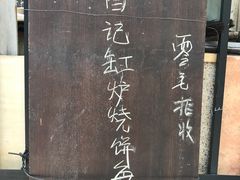 记缸炉烧饼
零毛拒收